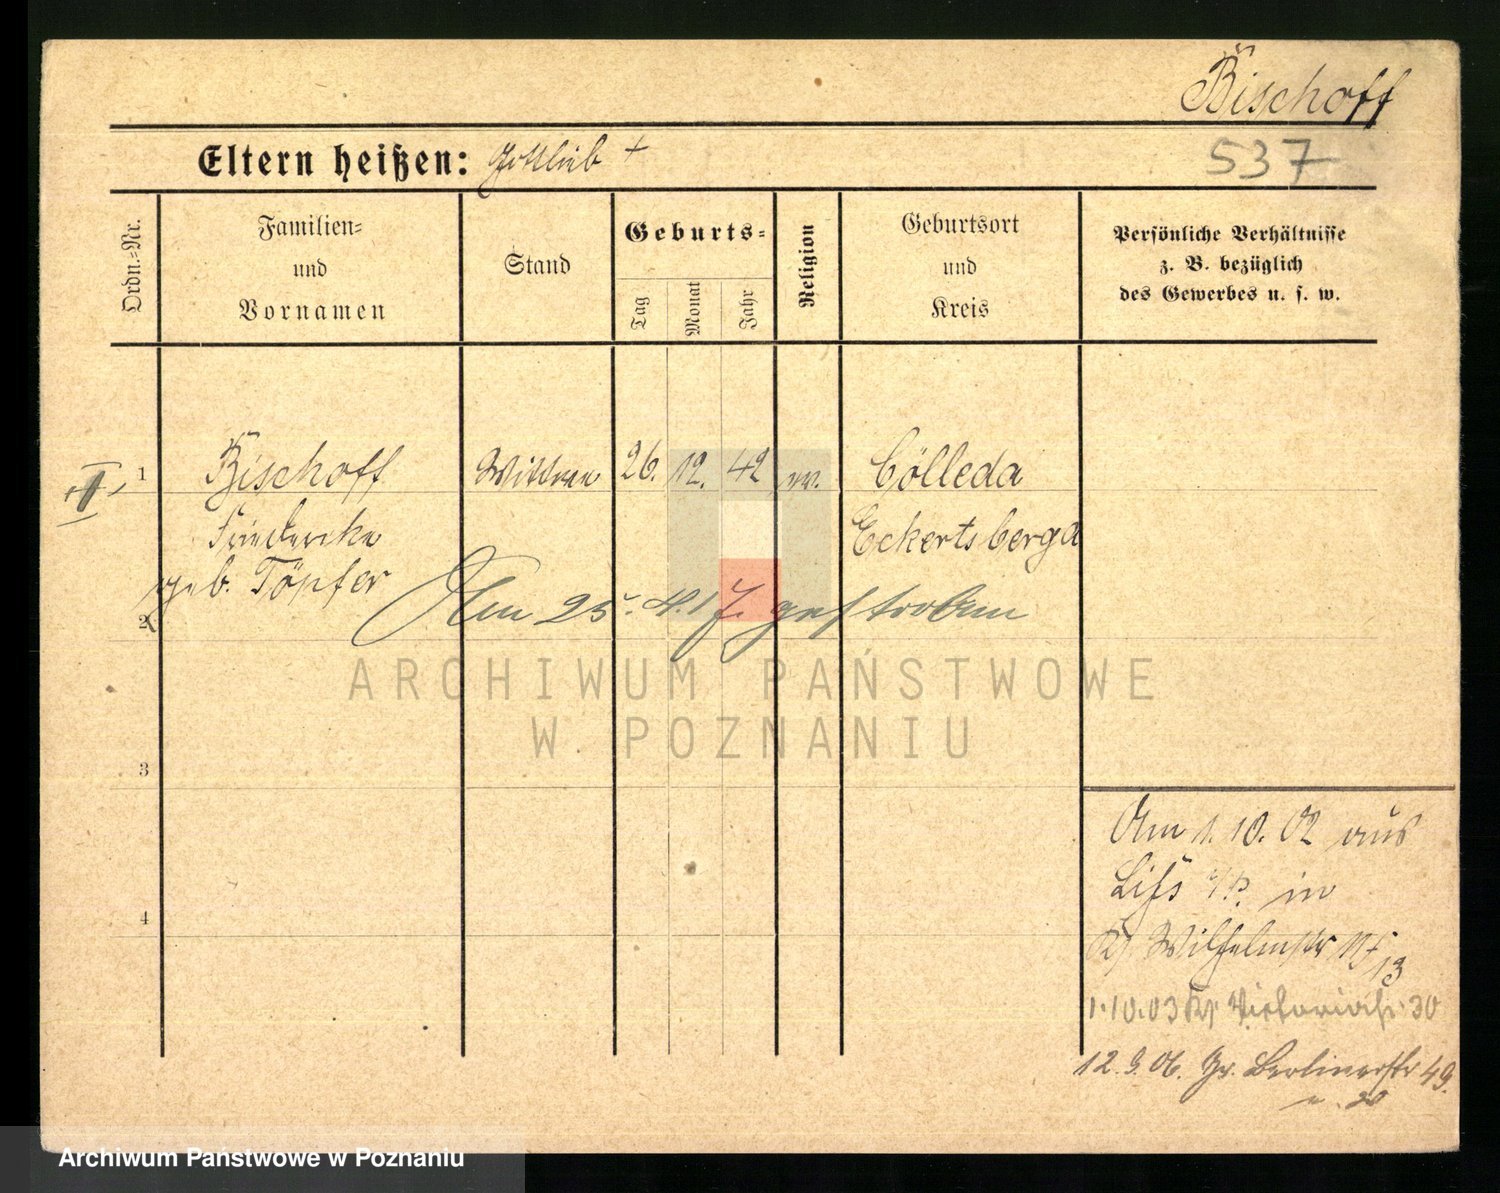 Bischoff
Eltern heißen: Gottlieb +
537
Ordn.=Nr.
Familien=
und
Vornamen
Stand
Geburts=
Tag
Monat
Jahr
Religion
Geburtsort
und
Kreis
Persönliche Verhältnisse
z. B. bezüglich
des Gewerbes u. s. w.
1 Bischoff Wittwe 26. 12. 42 ev. Cölleda
Friedericke Eckertsberga
geb. Töpfer
2 Am 25. 4. 17. gestorben
ARCHIWUM PAŃSTWOWE
W POZNANIU
3
4
Am 1. 10. 02 aus
in
Wilhelmstr 13
1.10.03 Victoriastr 30
12. 9. 06. Gr. Berlinerstr 49.
Archiwum Państwowe w Poznaniu